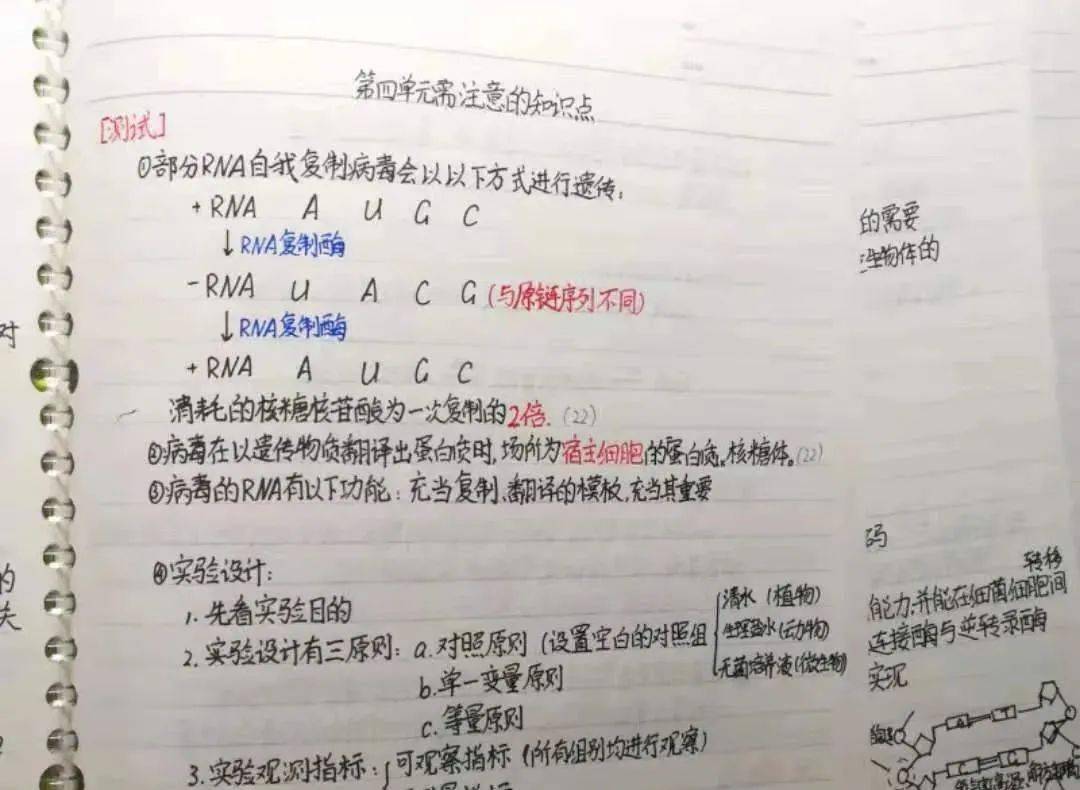 第四单元需注意的知识点
[测试]
①部分RNA自我复制病毒会以以下方式进行遗传:
+RNA A U G C
↓RNA复制酶
-RNA U A C G (与原链序列不同)
↓RNA复制酶
+RNA A U G C
消耗的核糖核苷酸为一次复制的2倍. (22)
②病毒在以遗传物质翻译出蛋白质时,场所为宿主细胞的蛋白质。核糖体。(22)
③病毒的RNA有以下功能:充当复制、翻译的模板,充当其重要
④实验设计:
1.先看实验目的
2.实验设计有三原则: a.对照原则 (设置空白的对照组
清水 (植物)
生理盐水(动物)
无菌培养液(微生物)
b.单一变量原则
c.等量原则
3.实验观测指标: 可观察指标 (所有组别均进行观察)
的需要
生物体的
码
转移
能力,并能在细菌细胞间
连接酶与逆转录酶
实现
对
的
失